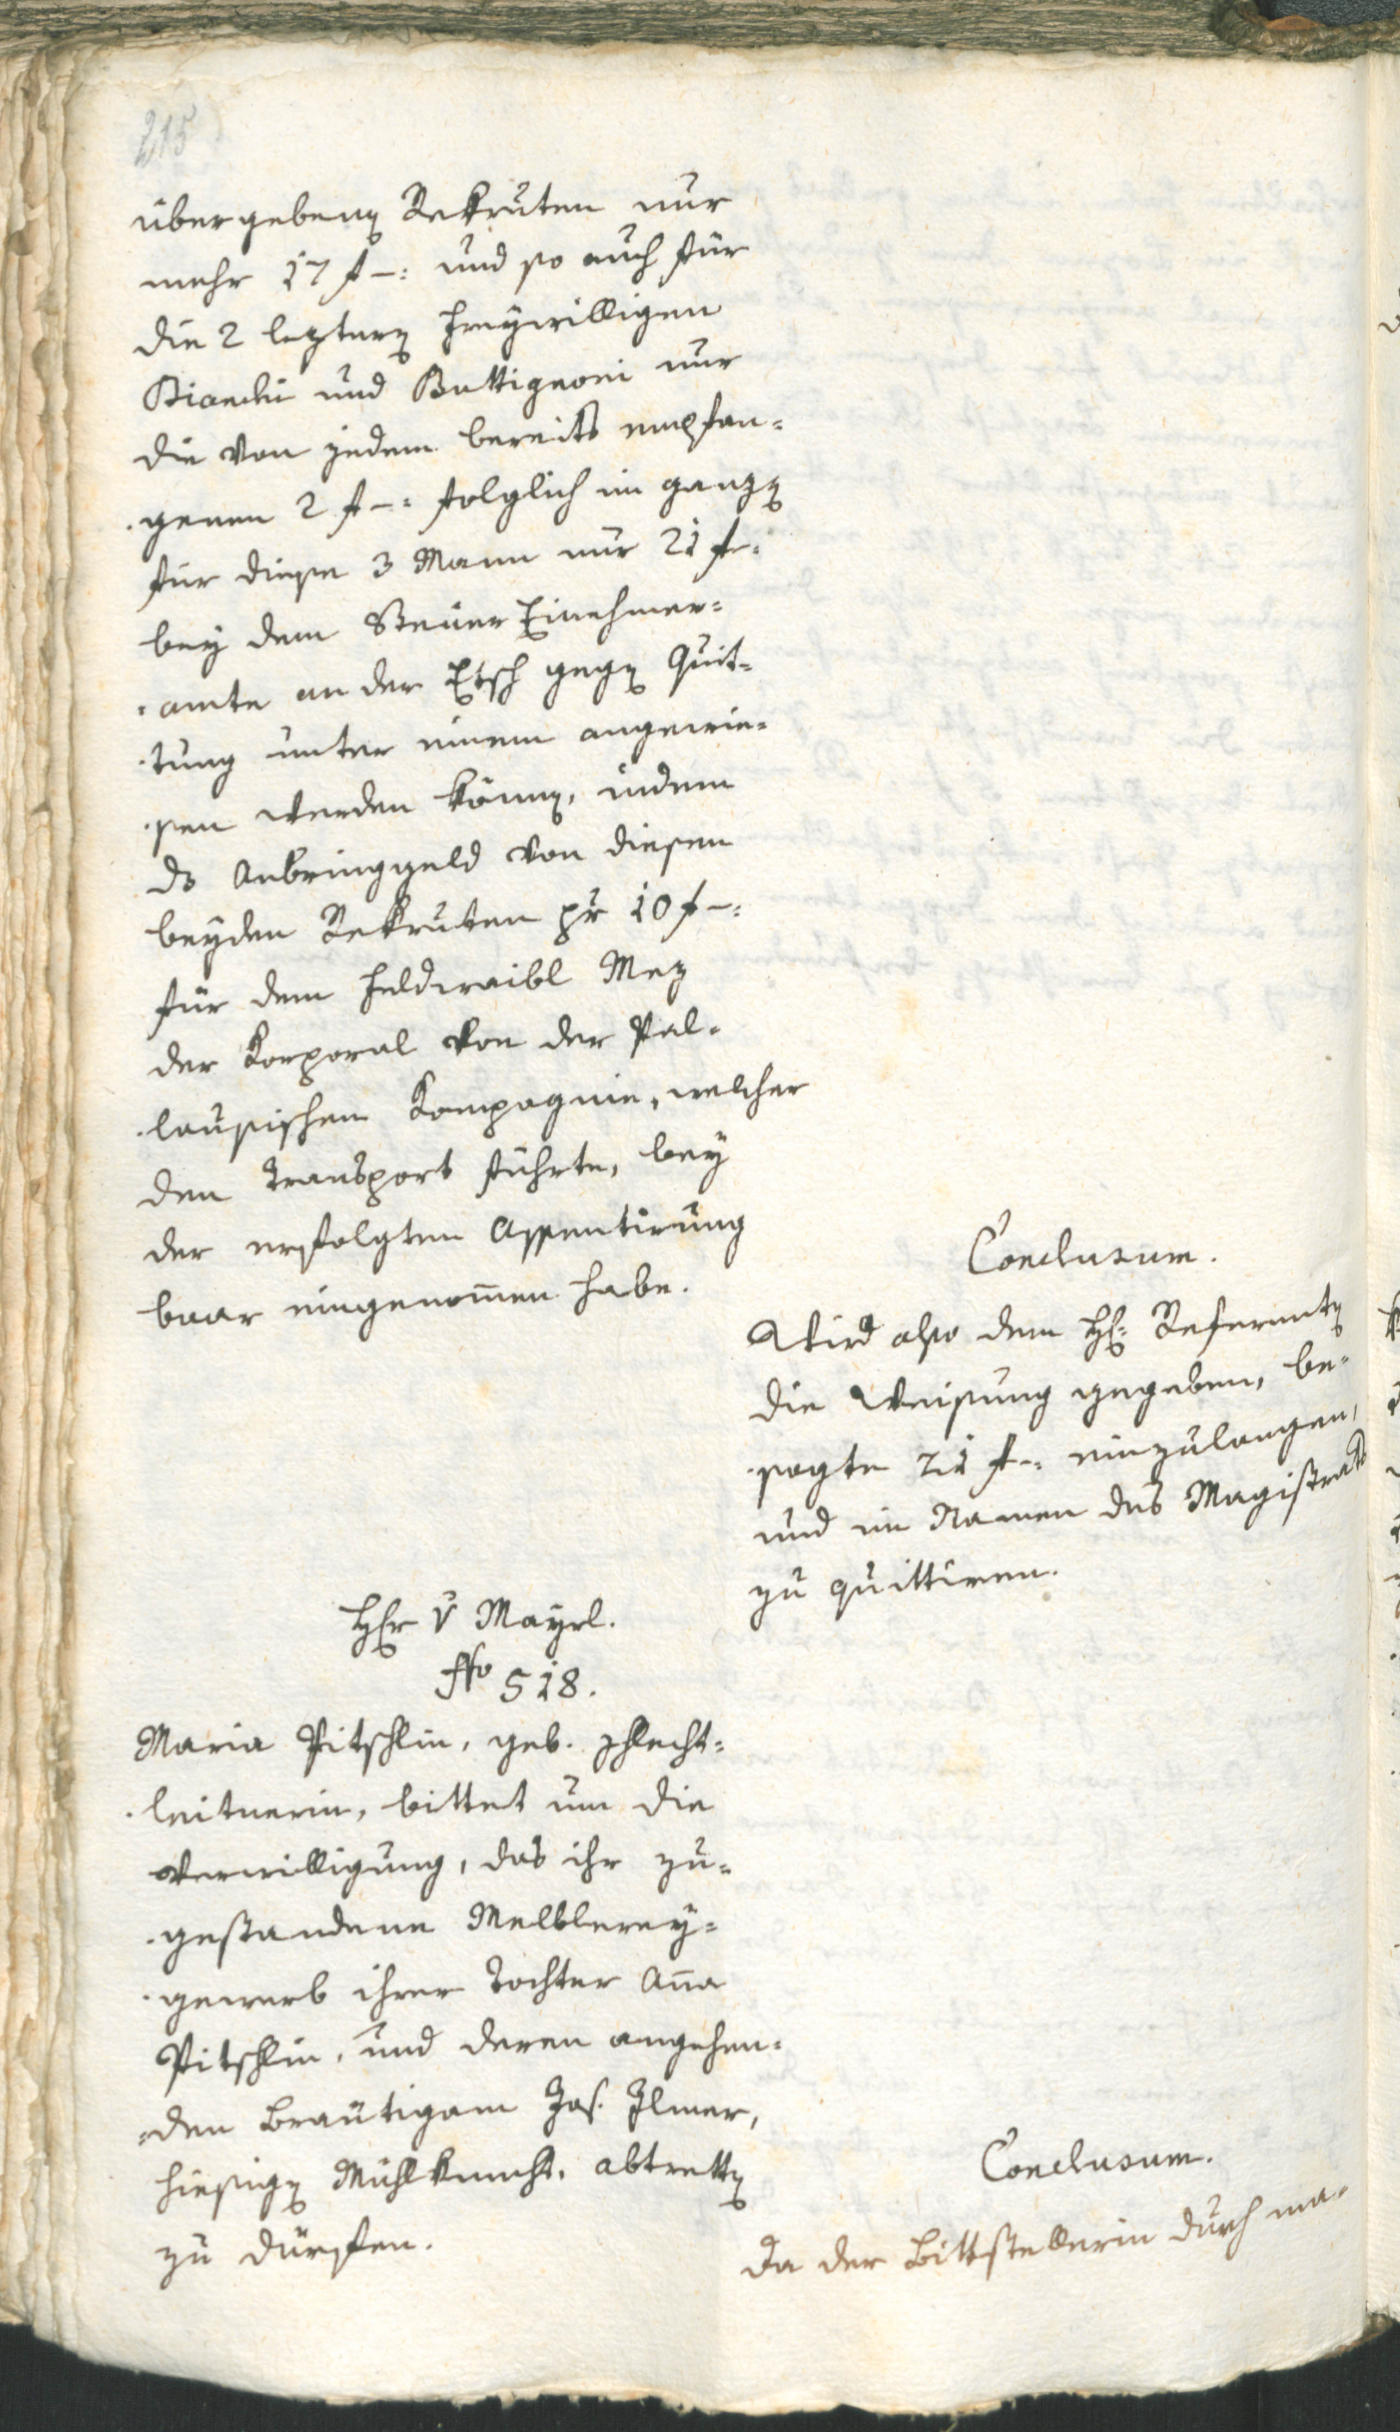 215
übergebenen Rekruten nur
mehr 17 f –: und so auch für
die 2 leztern Freywilligen
Bianchi und Battignoni nur
die von jedem bereits empfan=
genen 2 f –: folglich im ganzen
für diese 3 Mann nur 21 f –:
bey dem Steuer Einehmer=
amte an der Etsch gegen Quit=
tung unter einem angewie=
sen werden können, indem
ds Anbringgeld von diesen
beyden Rekruten pr 10 f –:
für dem Feldwaibl Mez
der Korporal von der Pal=
lausischen Kompagnie, welcher
den Transport führte, bey
der erfolgten Assentirung
baar eingenom̄en habe.
Conclusum.
Wird also dem H: Referenten
die Weisung gegeben, be=
sagte 21 f –: einzulangen,
und im Namen des Magistrats
zu quittiren.
Hr v Mayrl.
No 518.
Maria Pitschlin, geb. Schlecht=
leitnerin, bittet um die
Verwilligung, das ihr zu=
gestandene Melblerey=
gewerb ihrer Tochter An̄a
Pitschlin, und deren angehen=
den Bräutigam Jos. Ilmer,
hiesigen Mühlknecht, abtretten
zu dürfen.
Conclusum.
Da der Bittstellerin durch ma=